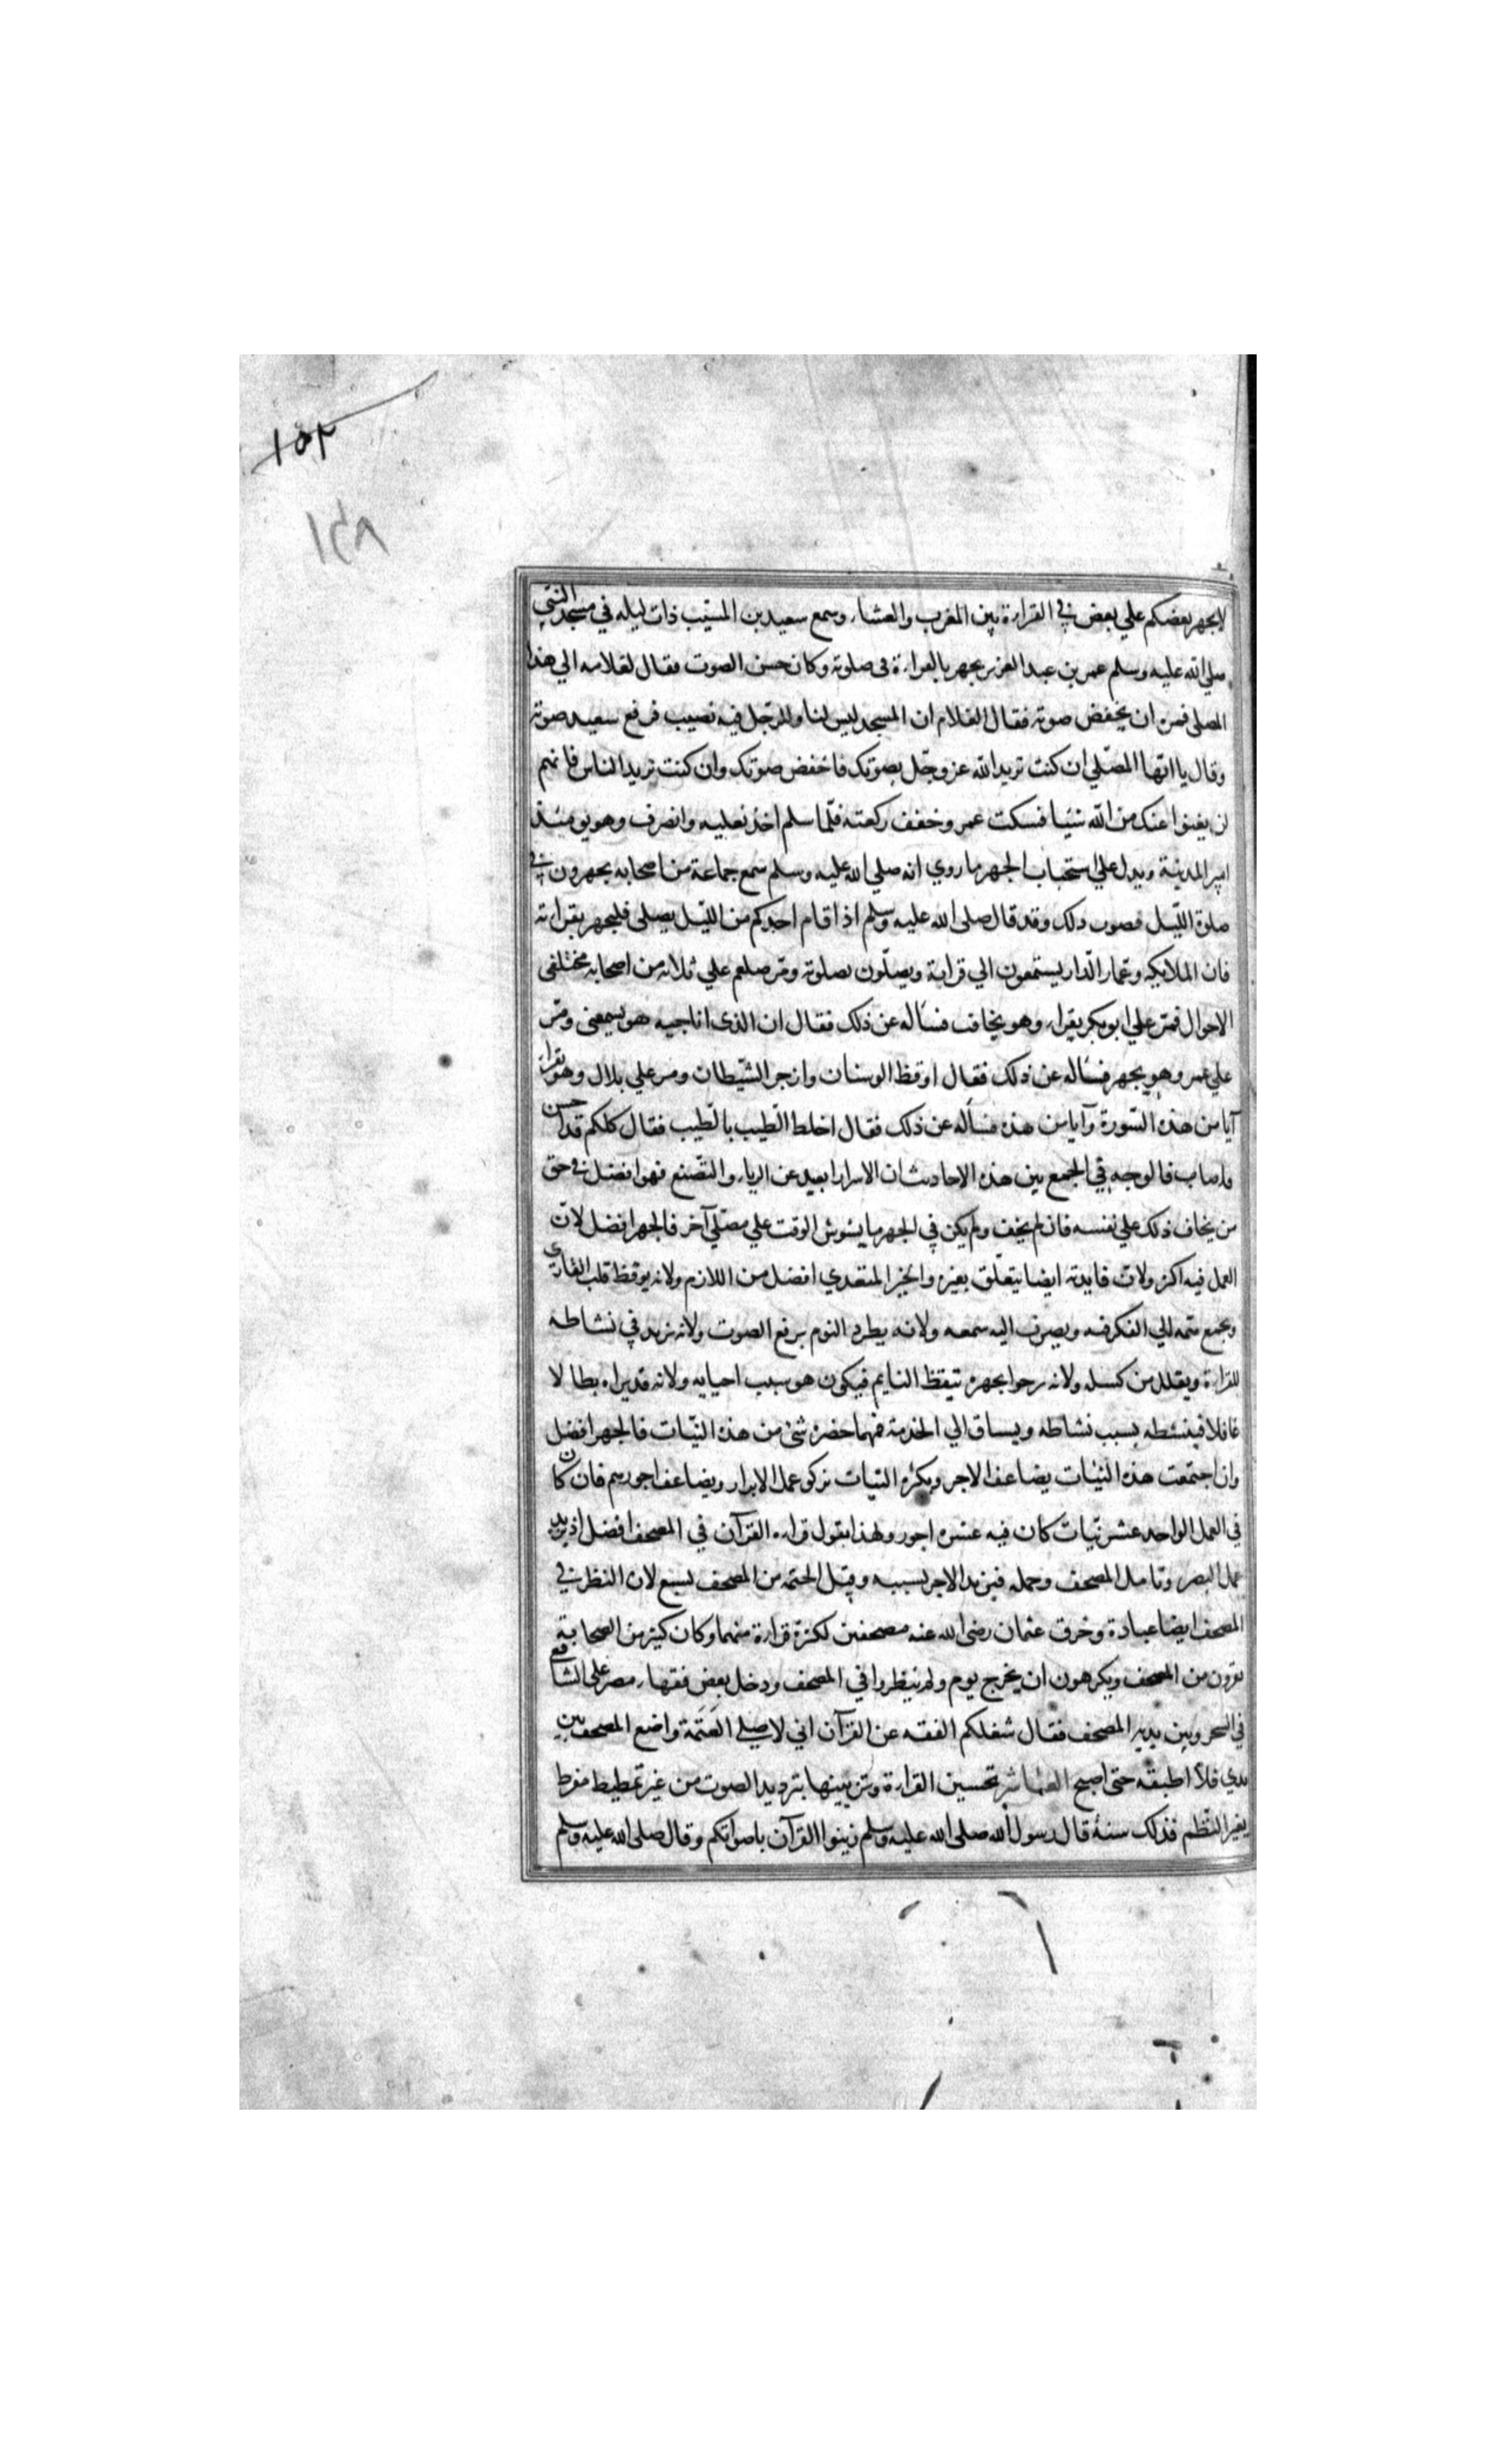 ١٥٢
١٤٨
لا يجهر بعضكم علي بعض في القراءة بين المغرب والعشاء وسمع سعيد بن المسيّب ذات ليله في مسجد النبي
صلي الله عليه وسلم عمر بن عبد العزيز يجهر بالقراءة فى صلوته وكان حسن الصوت فقال لغلامه الي هذا
المصلى فمره ان يخفض صوته فقال الغلام ان المسجد ليس لنا وللرجل فيه نصيب فرفع سعيد صوته
وقال يا ايها المصلّي ان كنت تريد الله عز وجل بصوتك فاخفض صوتك وان كنت تريد الناس فانهم
لن يغنوا عنك من الله شيئا فسكت عمر وخفف ركعته فلمّا سلم اخذ نعليه وانصرف وهو يومئذ
امير المدينة ويدل علي استحباب الجهر ما روي انه صلي الله عليه وسلم سمع جماعة من اصحابه يجهرون في
صلوة الليل فصوب ذلك وقد قال صلى الله عليه وسلم اذا قام احدكم من الليل يصلى فليجهر بقراءته
فان الملايكه وعمار الدار يستمعون الي قراءته ويصلّون بصلوته ومر صلعم علي ثلاثه من اصحابه مختلفى
الاحوال فمر علي ابو بكر يقراء وهو يخافت فسأله عن ذلك فقال ان الذى اناجيه هو يسمعنى ومر
علي عمر وهو يجهر فسأله عن ذلك فقال اوقظ الوسنان وازجر الشيطان ومر علي بلال وهو يقراء
آيا من هذه السورة وآيا من هذه فسأله عن ذلك فقال اخلط الطيب بالطيب فقال كلكم قد احسن
واصاب فالوجه في الجمع بين هذه الاحاديث ان الاسرار ابعد عن الرياء والتصنع فهو افضل في حق
من يخاف ذلك علي نفسه فان لم يخف ولم يكن في الجهر ما يشوش الوقت علي مصلّي آخر فالجهر افضل لانّ
العمل فيه اكثر ولانّ فايدته ايضا يتعلّق بغيره والخير المتعدي افضل من اللازم ولانه يوقظ قلب القاري
ويجمع همه الي الفكر فيه ويصرف اليه سمعه ولانه يطرد النوم برفع الصوت ولانه يزيد في نشاطه
للقراءة ويقلل من كسله ولانه يرجوا بجهره تيقظ النايم فيكون هو سبب احيايه ولانه قد يراه بطالا
غافلا فينشطه بسبب نشاطه ويساق الي الخدمة فمهما حضره شئ من هذه النيّات فالجهر افضل
وان اجتمعت هذه النيّات يضاعف الاجر وبكثرة النيات تزكو عمل الابرار ويضاعف اجورهم فان كان
في العمل الواحد عشر نيّات كان فيه عشرة اجور ولهذا يقول قراءه القرآن في المصحف افضل اذ يزيد
عمل البصر وتامل المصحف وحمله فيزيد الاجر بسببه وقيل الختمه من المصحف بسبع لان النظر في
المصحف ايضا عبادة وخرق عثمان رضى الله عنه مصحفين لكثرة قراءة منهما وكان كثير من الصحابة
يقرون من المصحف ويكرهون ان يخرج يوم ولم ينظروا في المصحف ودخل بعض فقهاء مصر على الشافعي
في السحر وبين يديه المصحف فقال شغلكم الفقه عن القرآن اني لاصلي العتمة واضع المصحف بين
يدي فلا اطبقه حتى اصبح العاشر تحسين القراءة وتزيينها بترديد الصوت من غير تمطيط مفرط
يغير النظم فذلك سنة قال رسول الله صلى الله عليه وسلم زينوا القرآن باصواتكم وقال صلى الله عليه وسلم